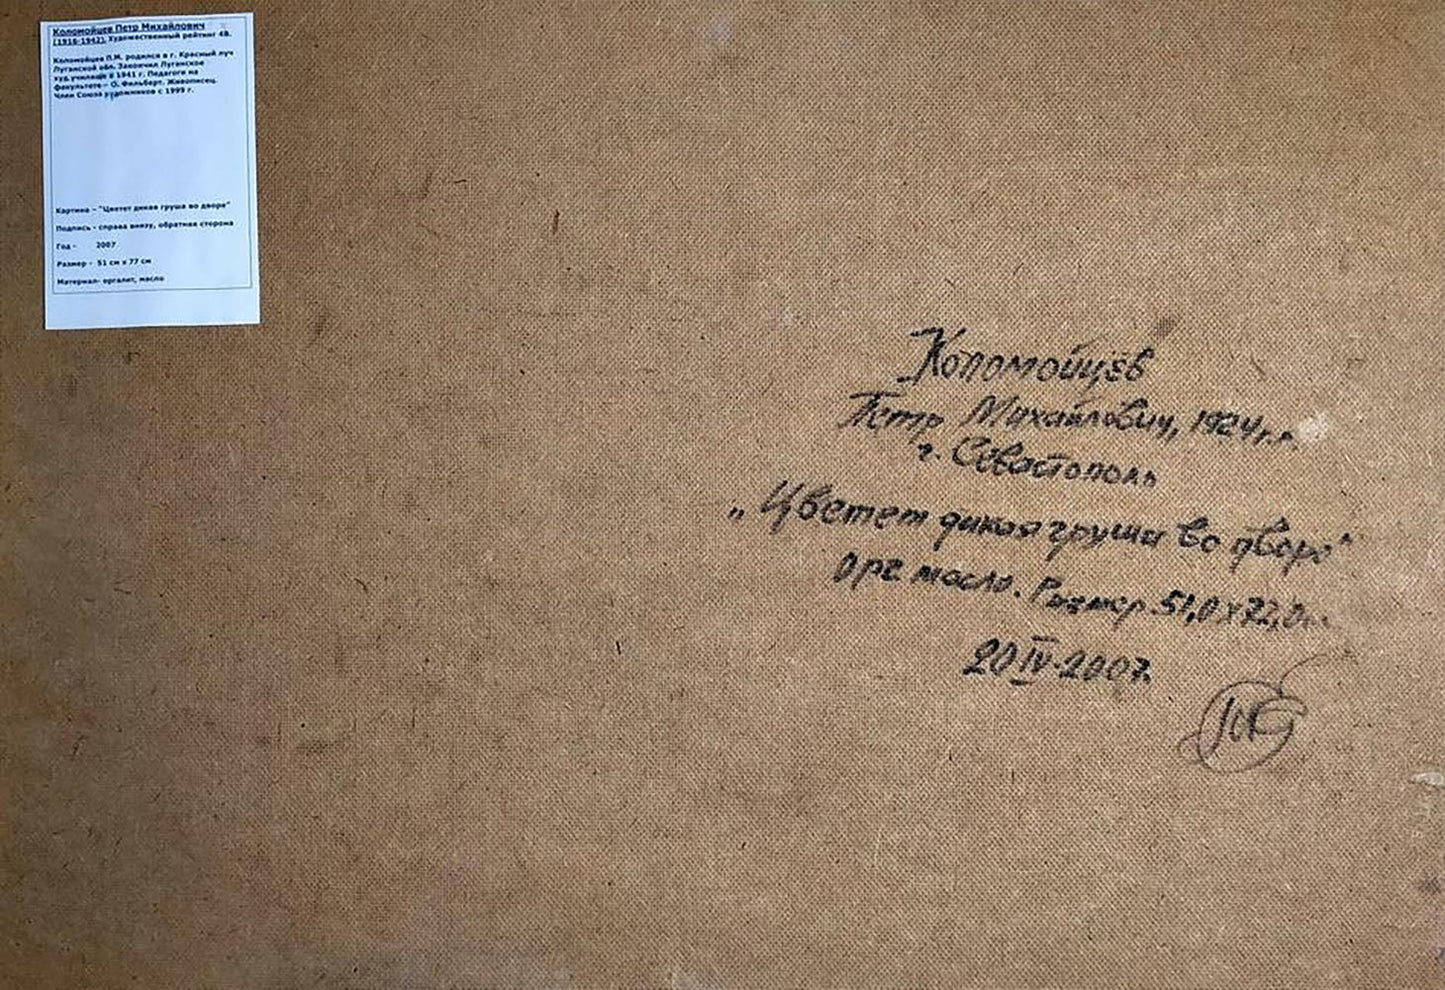 Коломойцев Петр Михайлович
(1916-1942). Художественный рейтинг 4В.
Коломойцев П.М. родился в г. Красный луч
Луганской обл. Закончил Луганское
худ.училище в 1941 г. Педагоги на
факультете - О. Фильберт. Живописец.
Член Союза художников с 1999 г.
Картина - "Цветет дикая груша во дворе"
Подпись - справа внизу, обратная сторона
Год - 2007
Размер - 51 см х 77 см
Материал- оргалит, масло
Коломойцев
Петр Михайлович, 1924г.р.
г. Севастополь
„Цветет дикая груша во дворе"
орг масло. Размер 51,0х72,0
20 IV-2007.